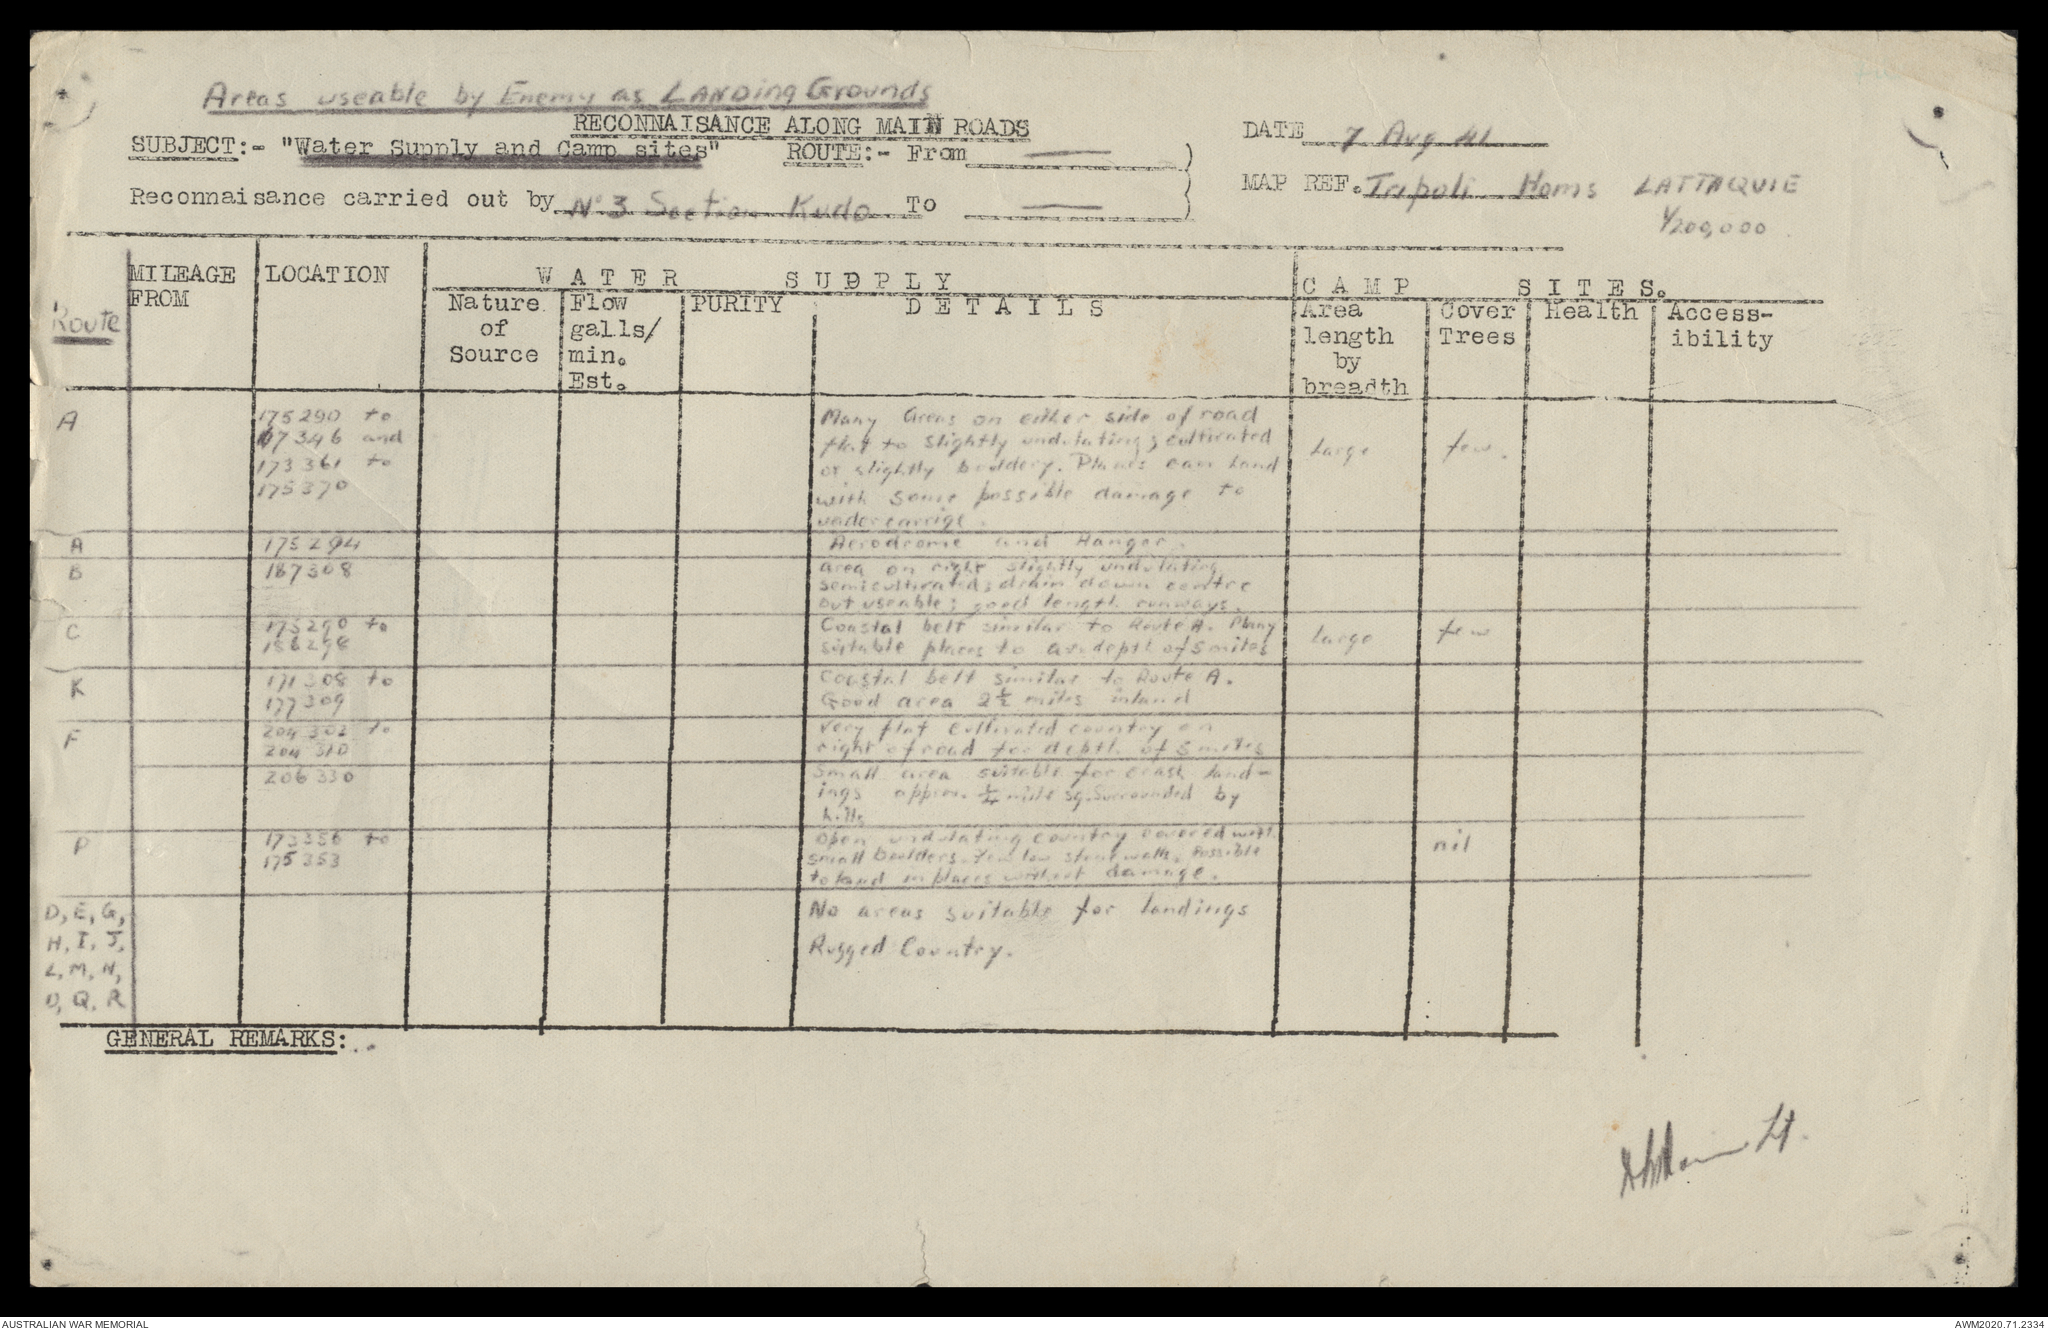 Areas useable by Enemy as LANDing Grounds
RECONNAISANCE ALONG MAIN ROADS
SUBJECT:- "Water Supply and Camp sites" ROUTE:- From
DATE 7 Aug 41
Reconnaisance carried out by No 3 Section Kudo To
MAP REF. Tripoli Homs LATTAQUIE
1/200,000
Route
MILEAGE FROM
LOCATION
WATER SUPPLY
CAMP SITES.
Nature of Source
Flow galls/ min. Est.
PURITY
DETAILS
Area length by breadth
Cover Trees
Health
Access-ibility
A
175290 to
67346 and
173361 to
175370
Many areas on either side of road
flat to slightly undulating; cultivated
or slightly bouldery. Planes can land
with some possible damage to
undercarrige.
Large
few.
A 175294 Aerodrome and Hanger.
B 187308 area on right slightly undulating
semicultivated; drain down centre
but useable; good length runways.
C 175290 to
186298
Coastal belt similar to Route A. Many
suitable places to a depth of 5 miles
Large few
K 171308 to
177309
Coastal belt similar to Route A.
Good area 2½ miles inland
F 204302 to
204310
Very flat cultivated country on
right of road for depth of 5 miles
206330 Small area suitable for crash land-
ings approx. ¼ mile sq. Surrounded by
hills
P 173356 to
175353
Open undulating country covered with
small boulders. Few low stone walls. Possible
to land in places without damage.
nil
D, E, G,
H, I, J,
L, M, N,
O, Q, R
No areas suitable for landings
Rugged Country.
GENERAL REMARKS:
Lt.
AUSTRALIAN WAR MEMORIAL
AWM2020.71.2334